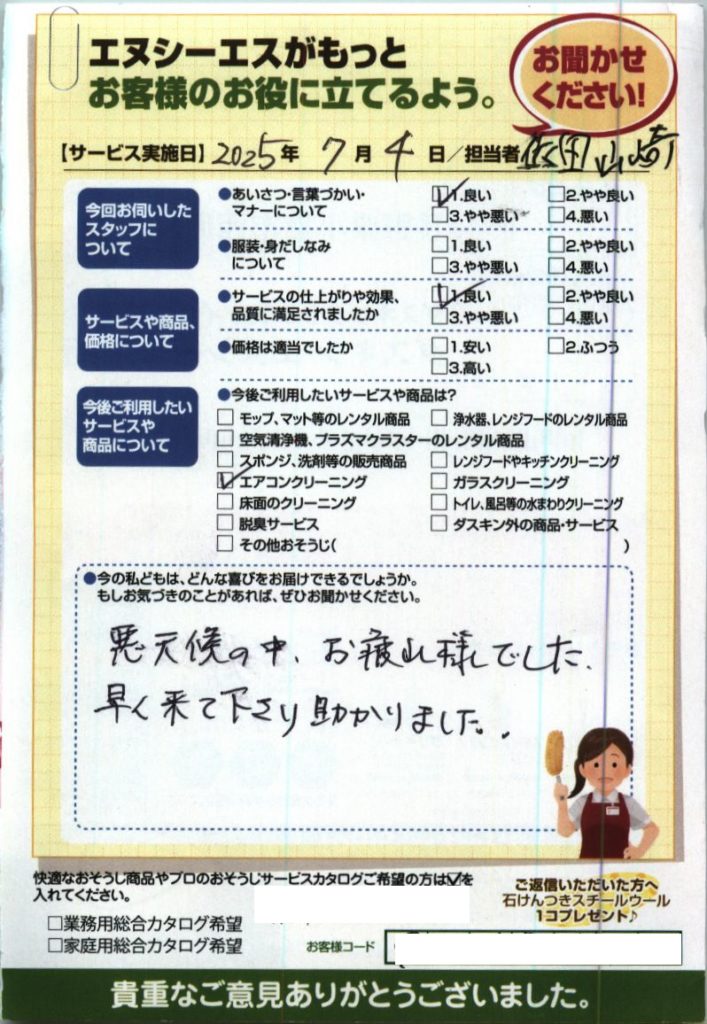 エヌシーエスがもっと
お客様のお役に立てるよう。
お聞かせ
ください!
【サービス実施日】2025年 7月 4日/担当者 飯田 山崎
今回お伺いした
スタッフに
ついて
●あいさつ・言葉づかい・
マナーについて
☑1.良い □2.やや良い
□3.やや悪い □4.悪い
●服装・身だしなみ
について
□1.良い □2.やや良い
□3.やや悪い □4.悪い
サービスや商品、
価格について
●サービスの仕上がりや効果、
品質に満足されましたか
☑1.良い □2.やや良い
□3.やや悪い □4.悪い
●価格は適当でしたか
□1.安い □2.ふつう
□3.高い
今後ご利用したい
サービスや
商品について
●今後ご利用したいサービスや商品は?
□モップ、マット等のレンタル商品 □浄水器、レンジフードのレンタル商品
□空気清浄機、プラズマクラスターのレンタル商品
□スポンジ、洗剤等の販売商品 □レンジフードやキッチンクリーニング
☑エアコンクリーニング □ガラスクリーニング
□床面のクリーニング □トイレ、風呂等の水まわりクリーニング
□脱臭サービス □ダスキン外の商品・サービス
□その他おそうじ( )
●今の私どもは、どんな喜びをお届けできるでしょうか。
もしお気づきのことがあれば、ぜひお聞かせください。
悪天候の中、お疲れ様でした。
早く来て下さり助かりました。
快適なおそうじ商品やプロのおそうじサービスカタログご希望の方は☑を
入れてください。
□業務用総合カタログ希望
□家庭用総合カタログ希望
ご返信いただいた方へ
石けんつきスチールウール
1コプレゼント♪
お客様コード
貴重なご意見ありがとうございました。